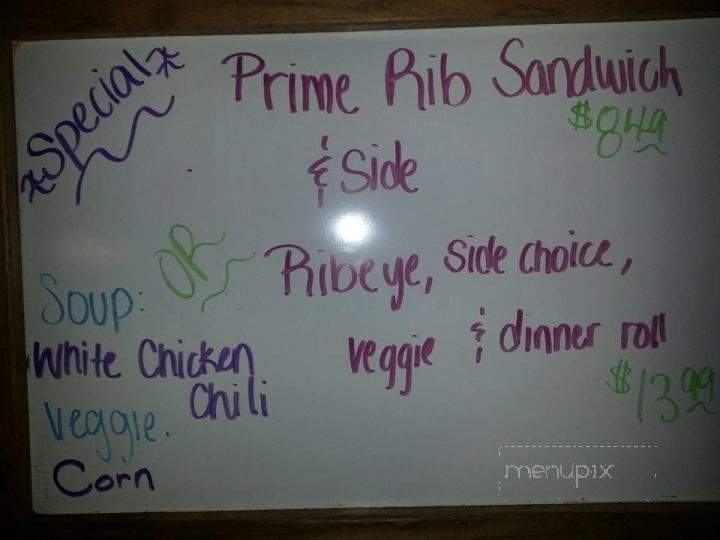 *Special*
Prime Rib Sandwich
$8.49
& Side
OR
Ribeye, side choice,
veggie & dinner roll
$13.99
Soup:
White Chicken
Chili
Veggie.
Corn
menupix